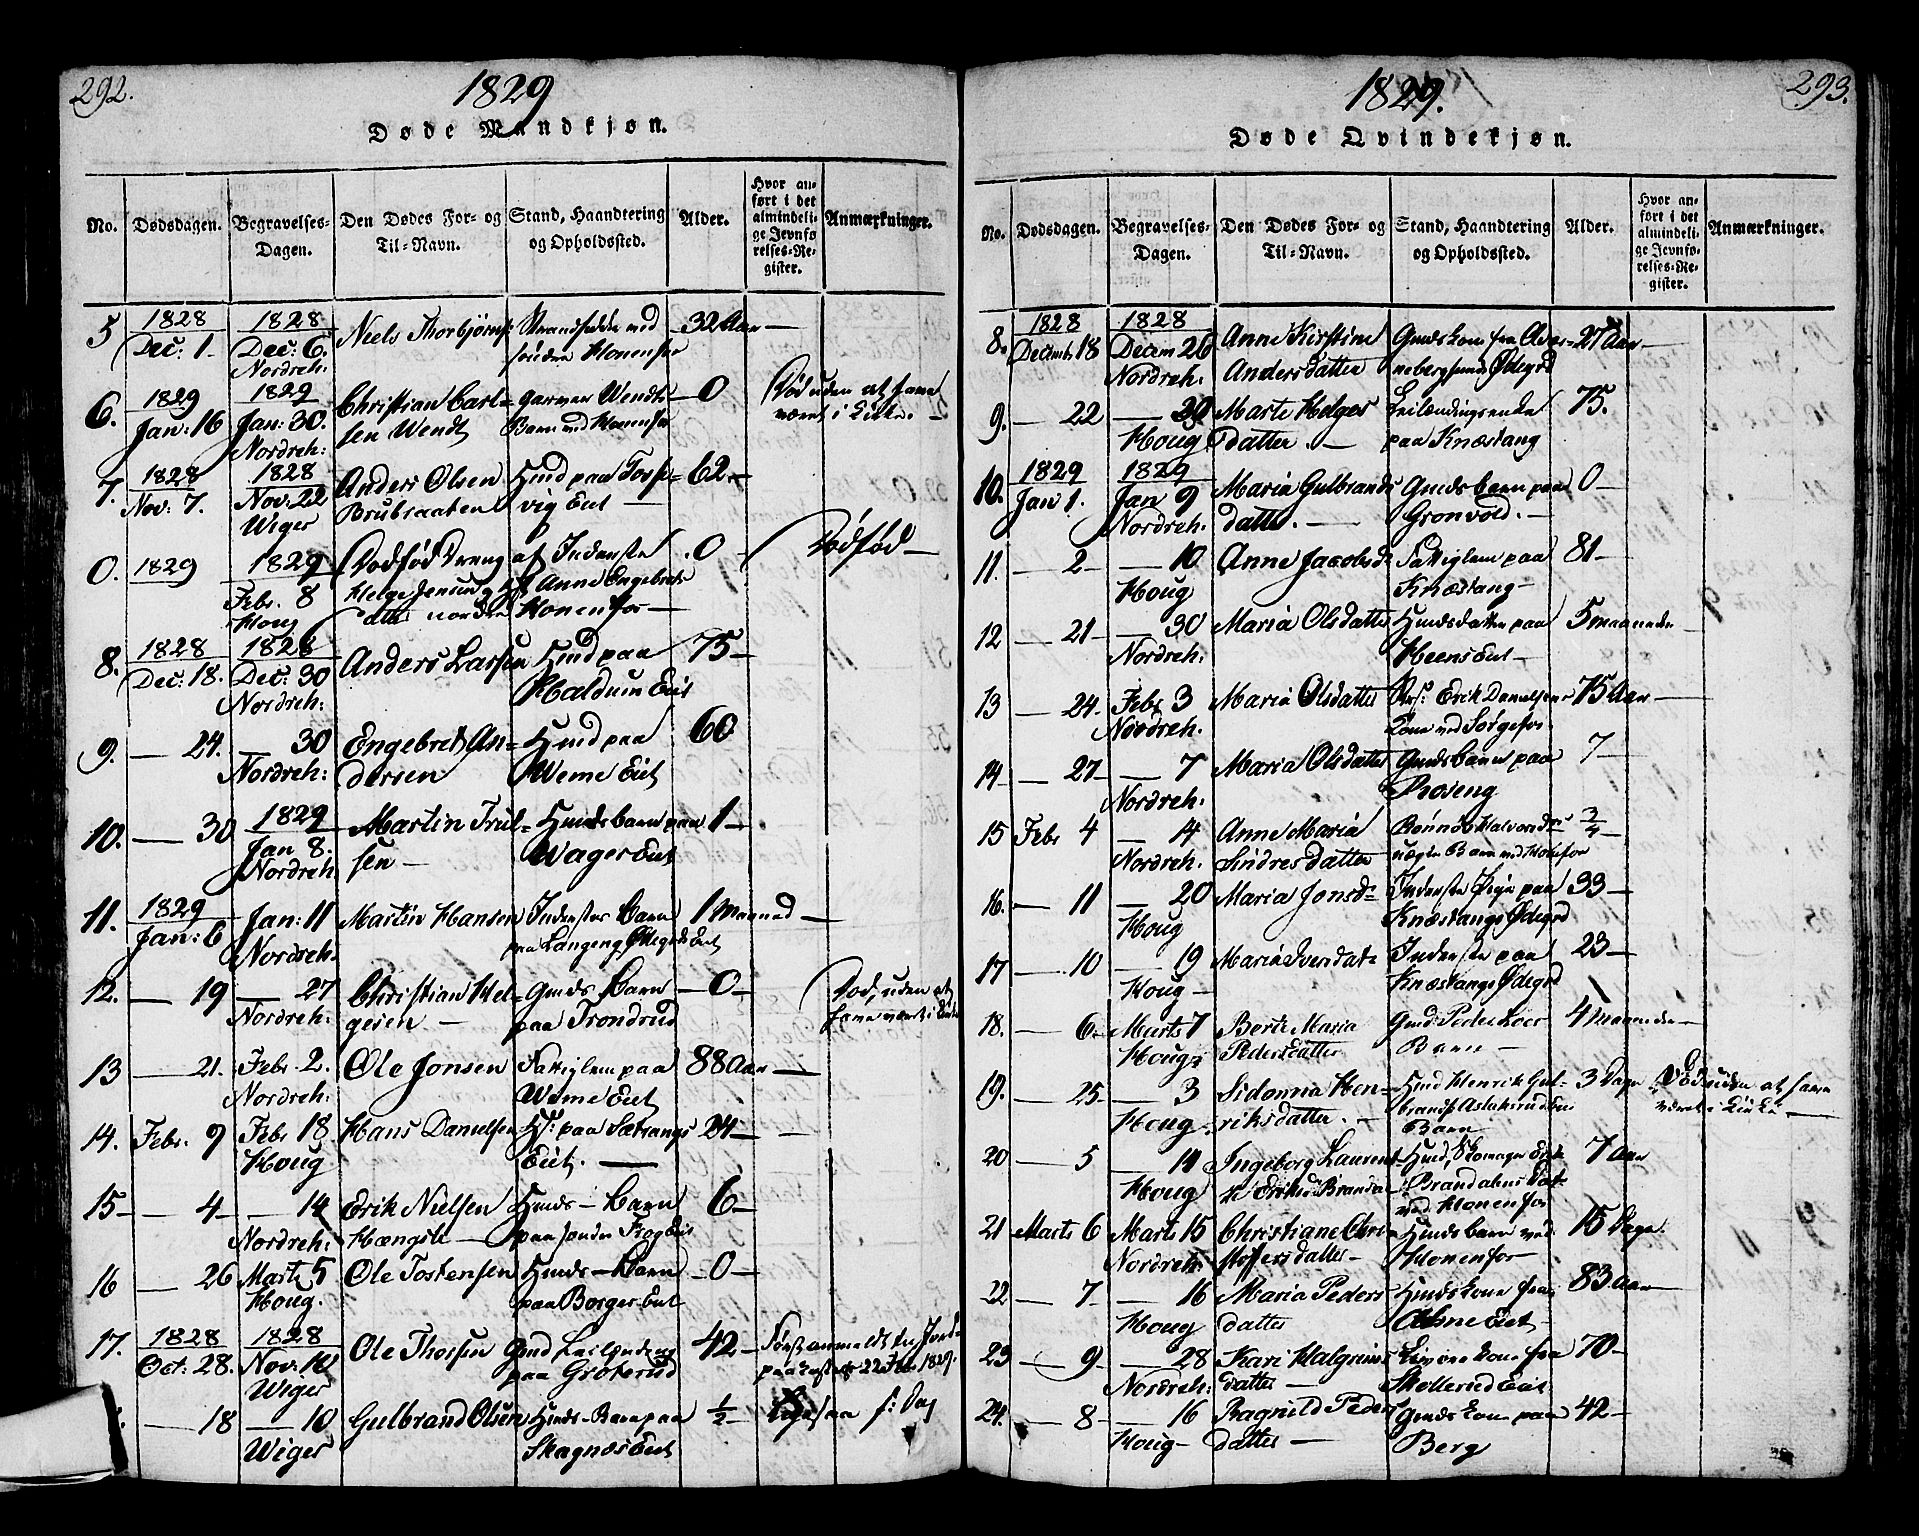 292.
1829
Døde Mandkjøn.
No. Dødsdagen. Begravelses-Dagen. Den Dødes For- og Til-Navn. Stand, Haandtering og Opholdssted. Alder. Hvor anført i det almindelige Jevnførelses-Register. Anmærkninger.
5 1828 Dec: 1. 1828 Dec: 6. Nordreh: Niels Thorbjørns: 32 Aar —
6. 1829 Jan: 16 1829 Jan: 30. Nordreh: Christian Carlsen Wendt Barn ved Honenfos 0 Død uden at have været i Kirke.
7. 1828 Nov: 7. 1828 Nov: 22 Wiger Anders Olsen Brubraaten 62. —
0. 1829 1829 Febr. 8 Houg Dødfød Dreng af Inderste Helge Jensen og Anne Engebrets datter nordre Honenfos — 0 Dødfød —
8. 1828 Dec: 18. 1828 Dec: 30 Nordreh: Anders Larsen Huusmand paa 75 —
9. — 24. — 30 Nordreh: Engebret Andersen Weme Eiet 60
10. — 30 1829 Jan 8. Nordreh Martin Trulsen — Wager Eiet 1 —
11. 1829 Jan: 6 Jan: 11 Nordreh. Martin Hansen Inderstes Barn paa Langeng Ødegaards Eiet 1 Maaned —
12. — 19 — 27 Nordreh: Christian Helgesen — Gmds Barn paa Trondrud 0 — Død, uden at have været i Kirke
13 — 21. Febr. 2. Nordreh: Ole Jonsen Fattiglem paa Weme Eiet 88 Aar —
14. Febr. 9 Febr 18 Houg Hans Danielsen paa Sætrangs Eiet. — 24 —
15 — 4 — 14 Nordreh: Erik Nielsen Hængsle — Hmds — Barn paa søndre 6 —
16 — 26 Marts 5 Houg. Ole Tostensen Hmds — Barn paa Borger Eiet 0 —
17. 1828 Oct: 28. 1828 Nov: 10 Wiger Ole Thorsen Gmd Leilænding paa Groterud 42 — Først anmeldt 22 1829.
— 18 — 10 Wiger Gulbrand Olsen Hmds — Barn paa Skagnæs Eiet 1/2 Ligesaa s: Dag
293.
1829.
Døde Qvindekjøn.
No. Dødsdagen. Begravelses-Dagen. Den Dødes For- og Til-Navn. Stand, Haandtering og Opholdssted. Alder. Hvor anført i det almindelige Jevnførelses-Register. Anmærkninger.
8. 1828 Decemb. 18 1828 Decem 26 Nordreh: Anne Kirstine Andersdatter Gmds kone fra 27 Aar —
9. — 22 — 29 Houg Marte Helgesdatter. — Leilændingsenke paa Knæstang 75.
10. 1829 Jan 1. 1829 Jan 9 Nordreh: Maria Gulbrandsdatter. — Gmds barn paa Gronvold. — 0 —
11. — 2 — 10 Houg Anne Jacobsd: Fattiglem paa Knæstang — 81 —
12 — 21 — 30 Nordreh: Maria Olsdatter Hmds datter paa Heens Eiet — 5 maaneder
13 — 24. Febr 3 Nordreh. Maria Olsdatter Erik Danielsens Kone ved Sørgefos — 75 Aar —
14 — 27 — 7 Nordreh: Maria Olsdatter Gmds barn paa Roseng 7 —
15 Febr 4 — 14 Nordreh. Anne Maria Sindresdatter Barn ved 3/4 —
16. — 11 — 20 Houg Maria Jonsd: Inderste Pige paa Knæstangs Ødegrd 33 —
17 — 10 — 19 Houg — Maria Iversdat: Inderste paa Knæstangs Ødegrd 23 —
18. — 6. Marts 7 Houg Berte Maria Pedersdatter Gmd Peder Barn — 4 Maaneder —
19. — 25. — 3 Houg Sidonna Henriksdatter. — Hmd Henrik Barn 3 Dage Død uden at have været i Kirke —
20 — 5 — 14 Houg Ingeborg Hmd, Skomager Erik ved Honenfos 7 Aar
21 Marts 6 Marts 15 Nordreh: Christiane Christoffersdatter — Hmds barn ved Honenfos — 15 Dage.
22 — 7 — 16 Houg Maria Pedersdatter Hmds kone fra Eiet — 83 Aar —
23 — 9 — 28 Nordreh: Kari Halgrimsdatter — kone fra Eiet 70 —
24. — 8 — 16 Houg — Ragnild Pedersdatter — Gmds kone paa Berg 42 —